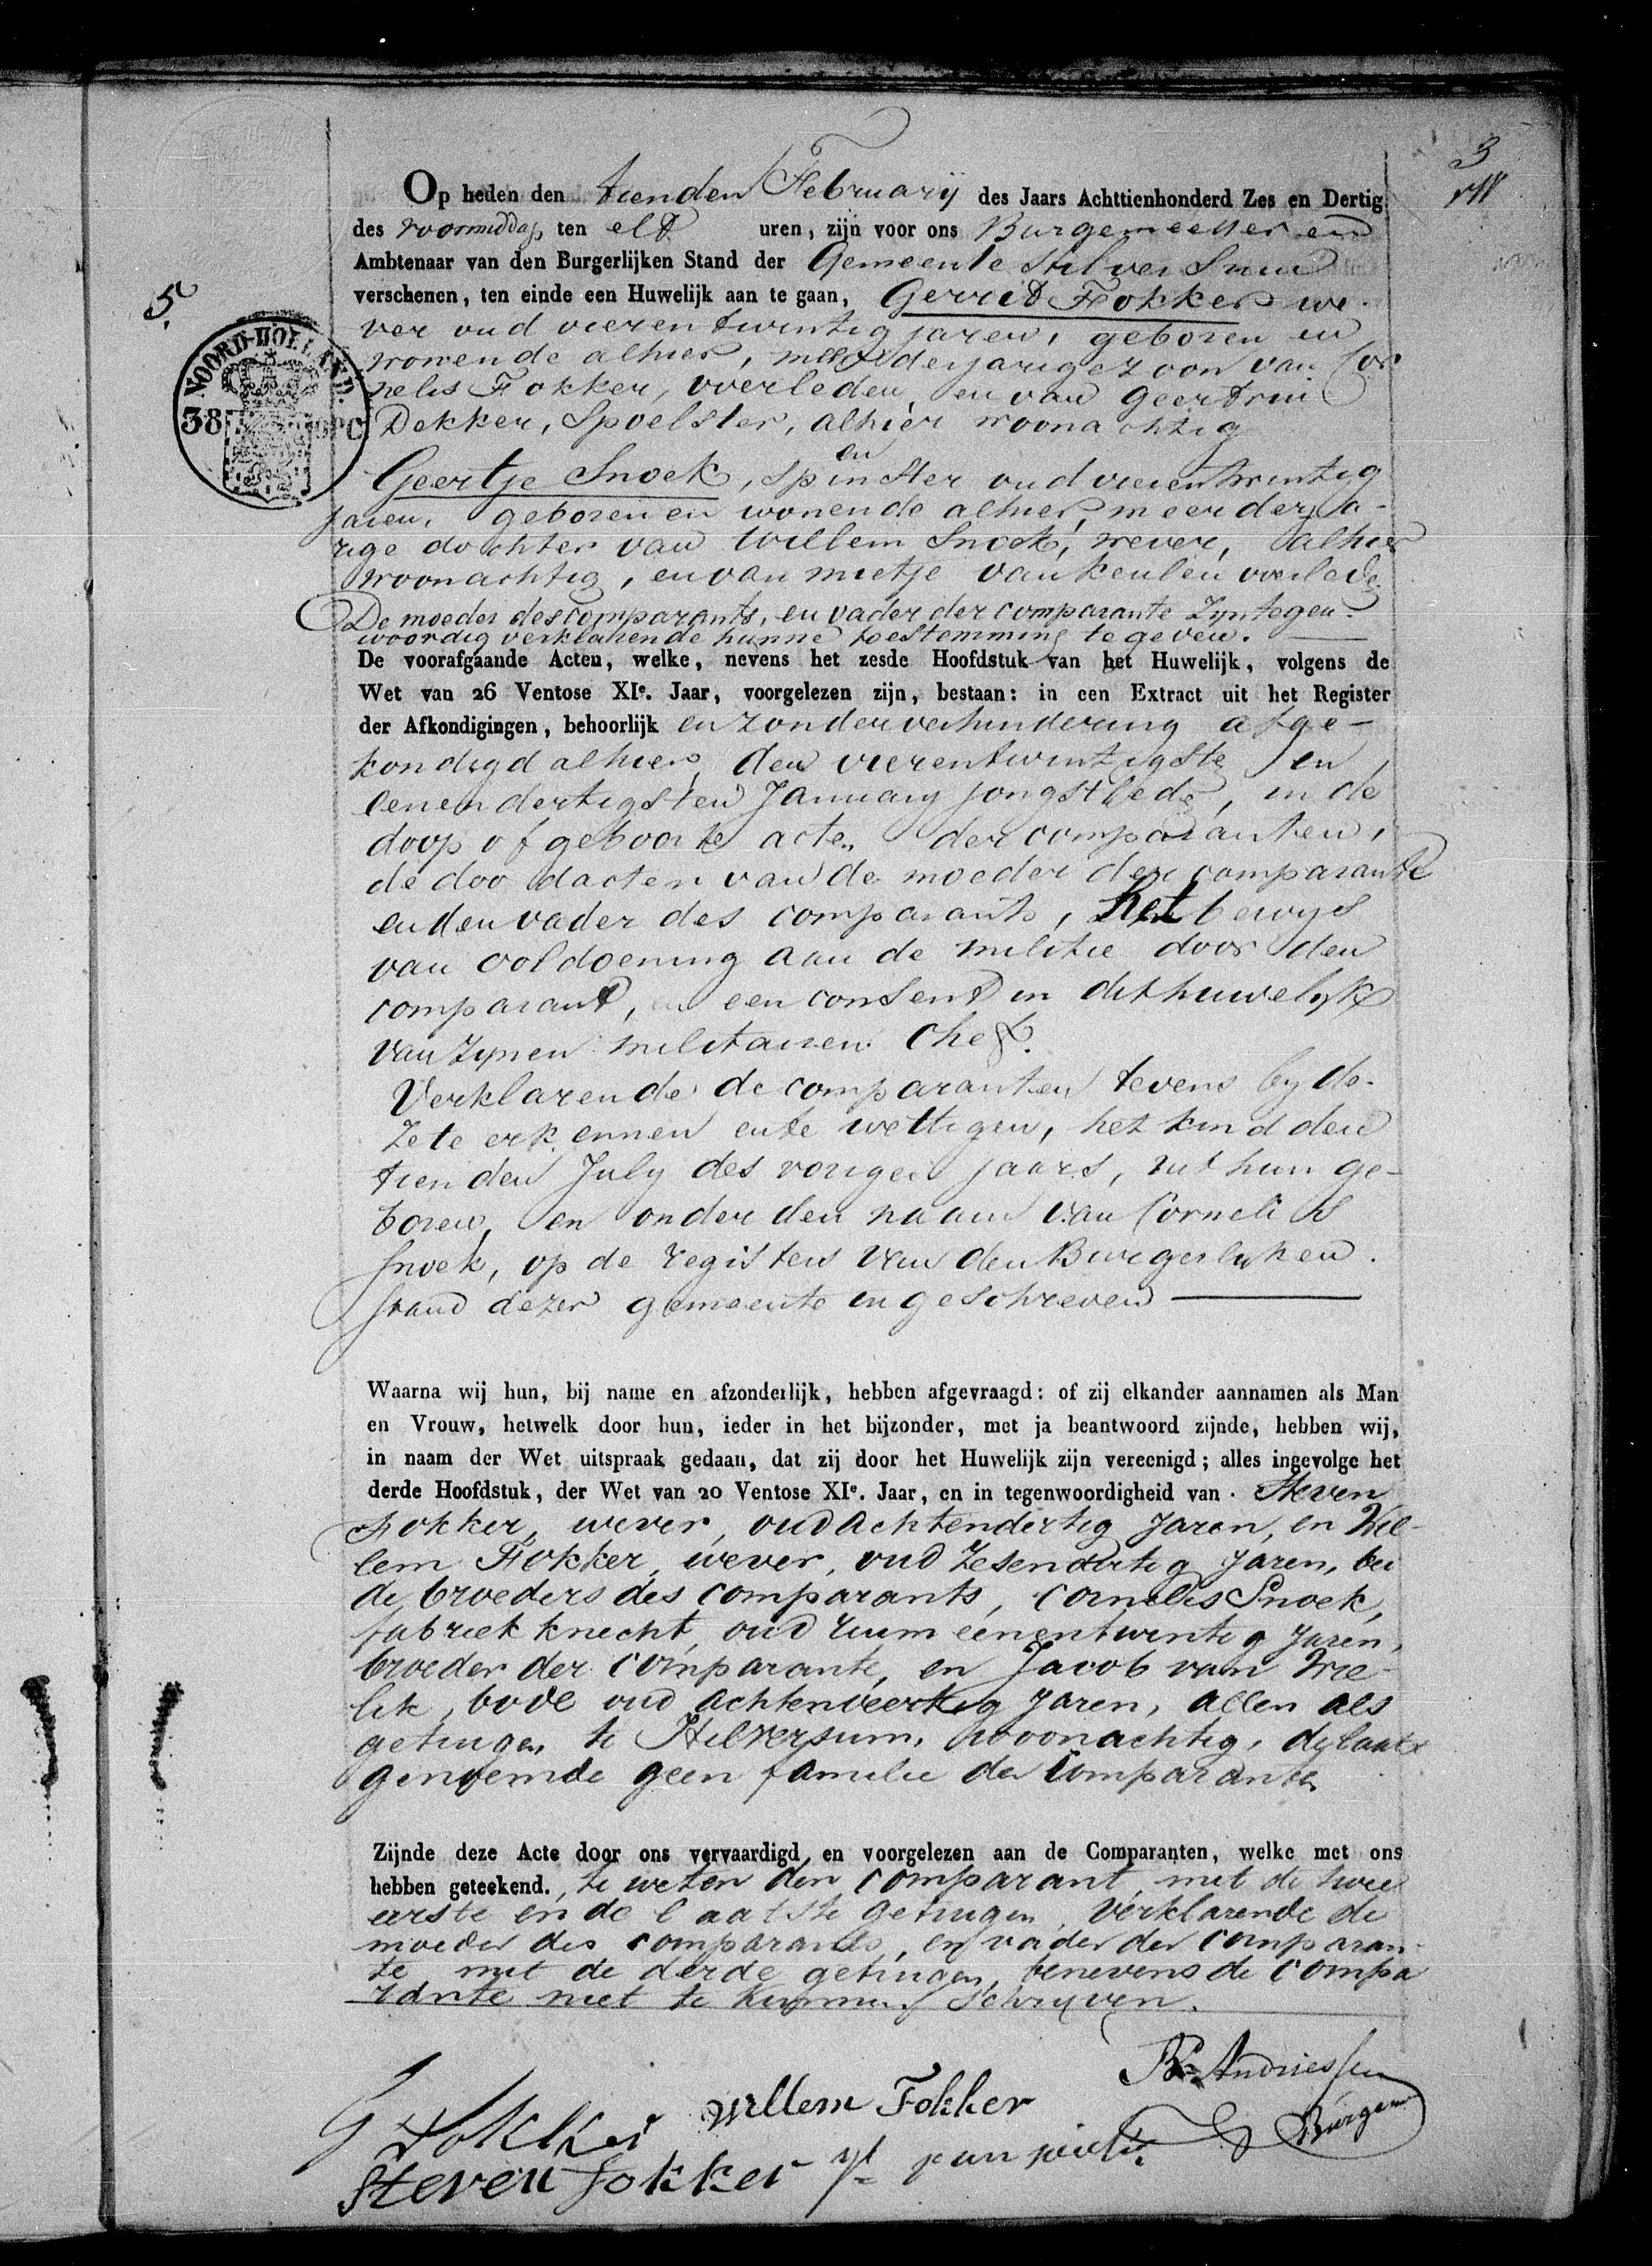 3
Op heden den tienden Februarij des Jaars Achttienhonderd Zes en Dertig
des voormiddags ten elf uren, zijn voor ons Burgemeester en
Ambtenaar van den Burgerlijken Stand der Gemeente Hilversum
verschenen, ten einde een Huwelijk aan te gaan, Gerrit Fokker we-
5.
ver oud vierentwintig jaren, geboren en
wonende alhier, meerderjarige zoon van Cor
NOORD-HOLLAND.
nelis Fokker, overleden, en van Geertrui
38
Dekker, Spoelster, alhier woonachtig
en
Geertje Snoek, spinster oud vierentwintig
jaren, geboren en wonende alhier, meerderja-
rige dochter van Willem Snoek, wever, alhier
woonachtig, en van mietje van Keulen overlede
De moeder des comparants, en vader der comparante zyn tegen-
woordig verklarende hunne toestemming te geven.
De voorafgaande Acten, welke, nevens het zesde Hoofdstuk van het Huwelijk, volgens de
Wet van 26 Ventose XIe. Jaar, voorgelezen zijn, bestaan: in een Extract uit het Register
der Afkondigingen, behoorlijk en zonder verhindering afge-
kondigd alhier, den vierentwintigste en
eenendertigsten January jongstlede, in de
doop of geboorte acten der comparanten,
de doodacten van de moeder der comparante
en den vader des comparants, het bewys
van voldoening aan de militie door den
comparant, en een consent in dit huwelyk
van zynen militairen chef.
Verklarende de comparanten tevens by de-
ze te erkennen en te wettigen, het kind den
tienden July des vorigen jaars, uit hun ge-
boren, en onder den naam van Cornelis
Snoek, op de registers van den Burgerlyken
stand dezer gemeente ingeschreven
Waarna wij hun, bij name en afzonderlijk, hebben afgevraagd: of zij elkander aannamen als Man
en Vrouw, hetwelk door hun, ieder in het bijzonder, met ja beantwoord zijnde, hebben wij,
in naam der Wet uitspraak gedaan, dat zij door het Huwelijk zijn vereenigd; alles ingevolge het
derde Hoofdstuk, der Wet van 20 Ventose XIe. Jaar, en in tegenwoordigheid van Steven
Fokker, wever, oud achtendertig Jaren, en Wil-
lem Fokker, wever, oud zesendertig Jaren, bei
de broeders des comparants, Cornelis Snoek,
fabriek knecht, oud ruim eenentwintig Jaren,
broeder der comparante, en Jacob van
bode oud achtenveertig Jaren, allen als
getuigen te Hilversum woonachtig, de laatst
genoemde geen familie der Comparanten
Zijnde deze Acte door ons vervaardigd en voorgelezen aan de Comparanten, welke met ons
hebben geteekend. te weten den comparant, met de twee
eerste en de laatste getuigen, Verklarende de
moeder des comparants, en vader der comparan-
te met de derde getuigen, benevens de compa
rante niet te kunnen schryven.
B. Andriessen
Burgem
G Fokker
Willem Fokker
Steven Fokker